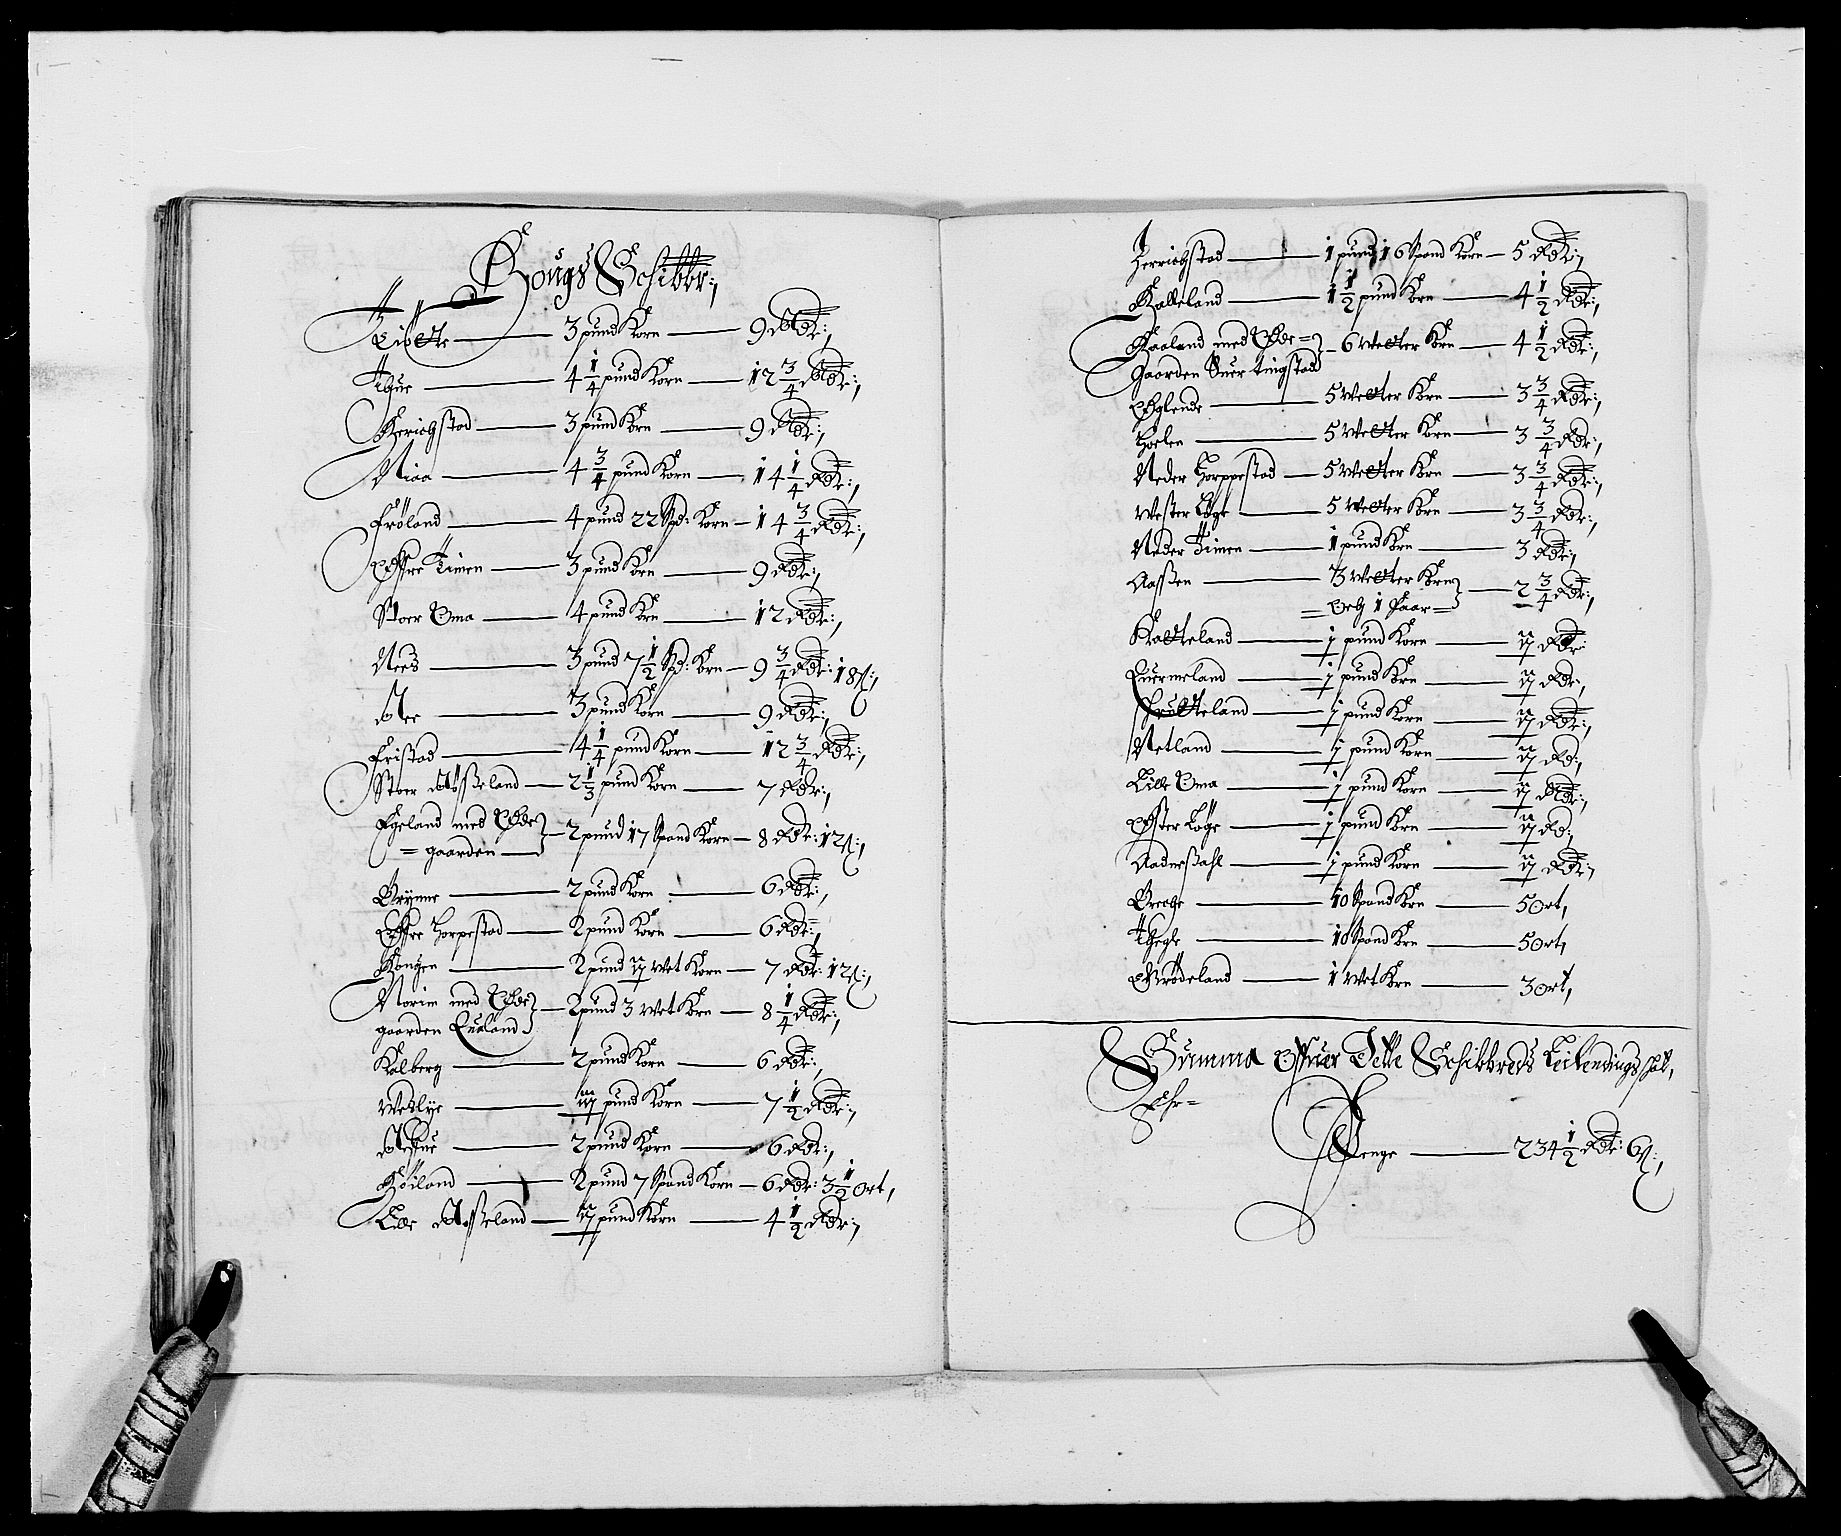 Hougs Schibbr:,
Liocte 3 pund Korn 9 Rdr:,
Thue 4 1/4 pund Korn 12 3/4 Rdr:,
Herichstad 3 pund Korn 9 Rdr:,
Niaa 4 3/4 pund Korn 14 1/4 Rdr:,
Frøland 4 pund 22 Spd: Korn 14 3/4 Rdr:,
Øffre Timen 3 pund Korn 9 Rdr:,
Stoer Oma 4 pund Korn 12 Rdr:,
Nees 3 pund 7 1/2 Spd: Korn 9 3/4 Rdr: 18 s:,
Aee 3 pund Korn 9 Rdr:,
Fristad 4 1/4 pund Korn 12 3/4 Rdr:,
Stoer Aasseland 2 1/3 pund Korn 7 Rdr:,
Egeland med Øde
= gaarden 2 pund 17 Spand Korn 8 Rdr: 12 s:,
Brynne 2 pund Korn 6 Rdr:,
Øffre Horpestad 2 pund Korn 6 Rdr:,
Hongen 2 pund ij Wet Korn 7 Rdr: 12 s:,
Norim med Øde
gaarden Eualand 2 pund 3 Wet Korn 8 1/4 Rdr:,
Kalberg 2 pund Korn 6 Rdr:,
Weslye iij pund Korn 7 1/2 Rdr:,
2 pund Korn 6 Rdr:,
Høiland 2 pund 7 Spand Korn 6 Rdr: 3 1/2 ort,
Lille Aasseland ij pund Korn 4 1/2 Rdr:,
Herrichstad 1 pund 16 Spand Korn 5 Rdr:,
Kalleland 1 1/2 pund Korn 4 1/2 Rdr:,
Haaland med Øde =
gaarden Suertingstad 6 Wetter Korn 4 1/2 Rdr:,
Øglende 5 Wetter Korn 3 3/4 Rdr:,
Hoelen 5 Wetter Korn 3 3/4 Rdr:,
Neder Horppestad 5 Wetter Korn 3 3/4 Rdr:,
Wester Løge 5 Wetter Korn 3 3/4 Rdr:,
Neder Timen 1 pund Korn 3 Rdr:,
Aassen 3 Wetter Korn
= och 1 Faar = 2 3/4 Rdr:,
Kalteland j pund Korn ij Rdr:
Quermeland j pund Korn ij Rdr:,
j pund Korn ij Rdr:,
Netland j pund Korn ij Rd:,
Lille Oma j pund Korn ij Rdr:,
Øster Løge j pund Korn ij Rd:,
Aadnesdahl j pund Korn ij Rdr:,
Breche 10 Spand Korn 5 ort,
Thegle 10 Spand Korn 5 ort,
Grødeland 1 Wet Korn 3 ort,
Summa Offuer Dette Schibbreds Leilendings schatt,
Ehr =
Penge 234 1/2 Rdr: 6 s:,